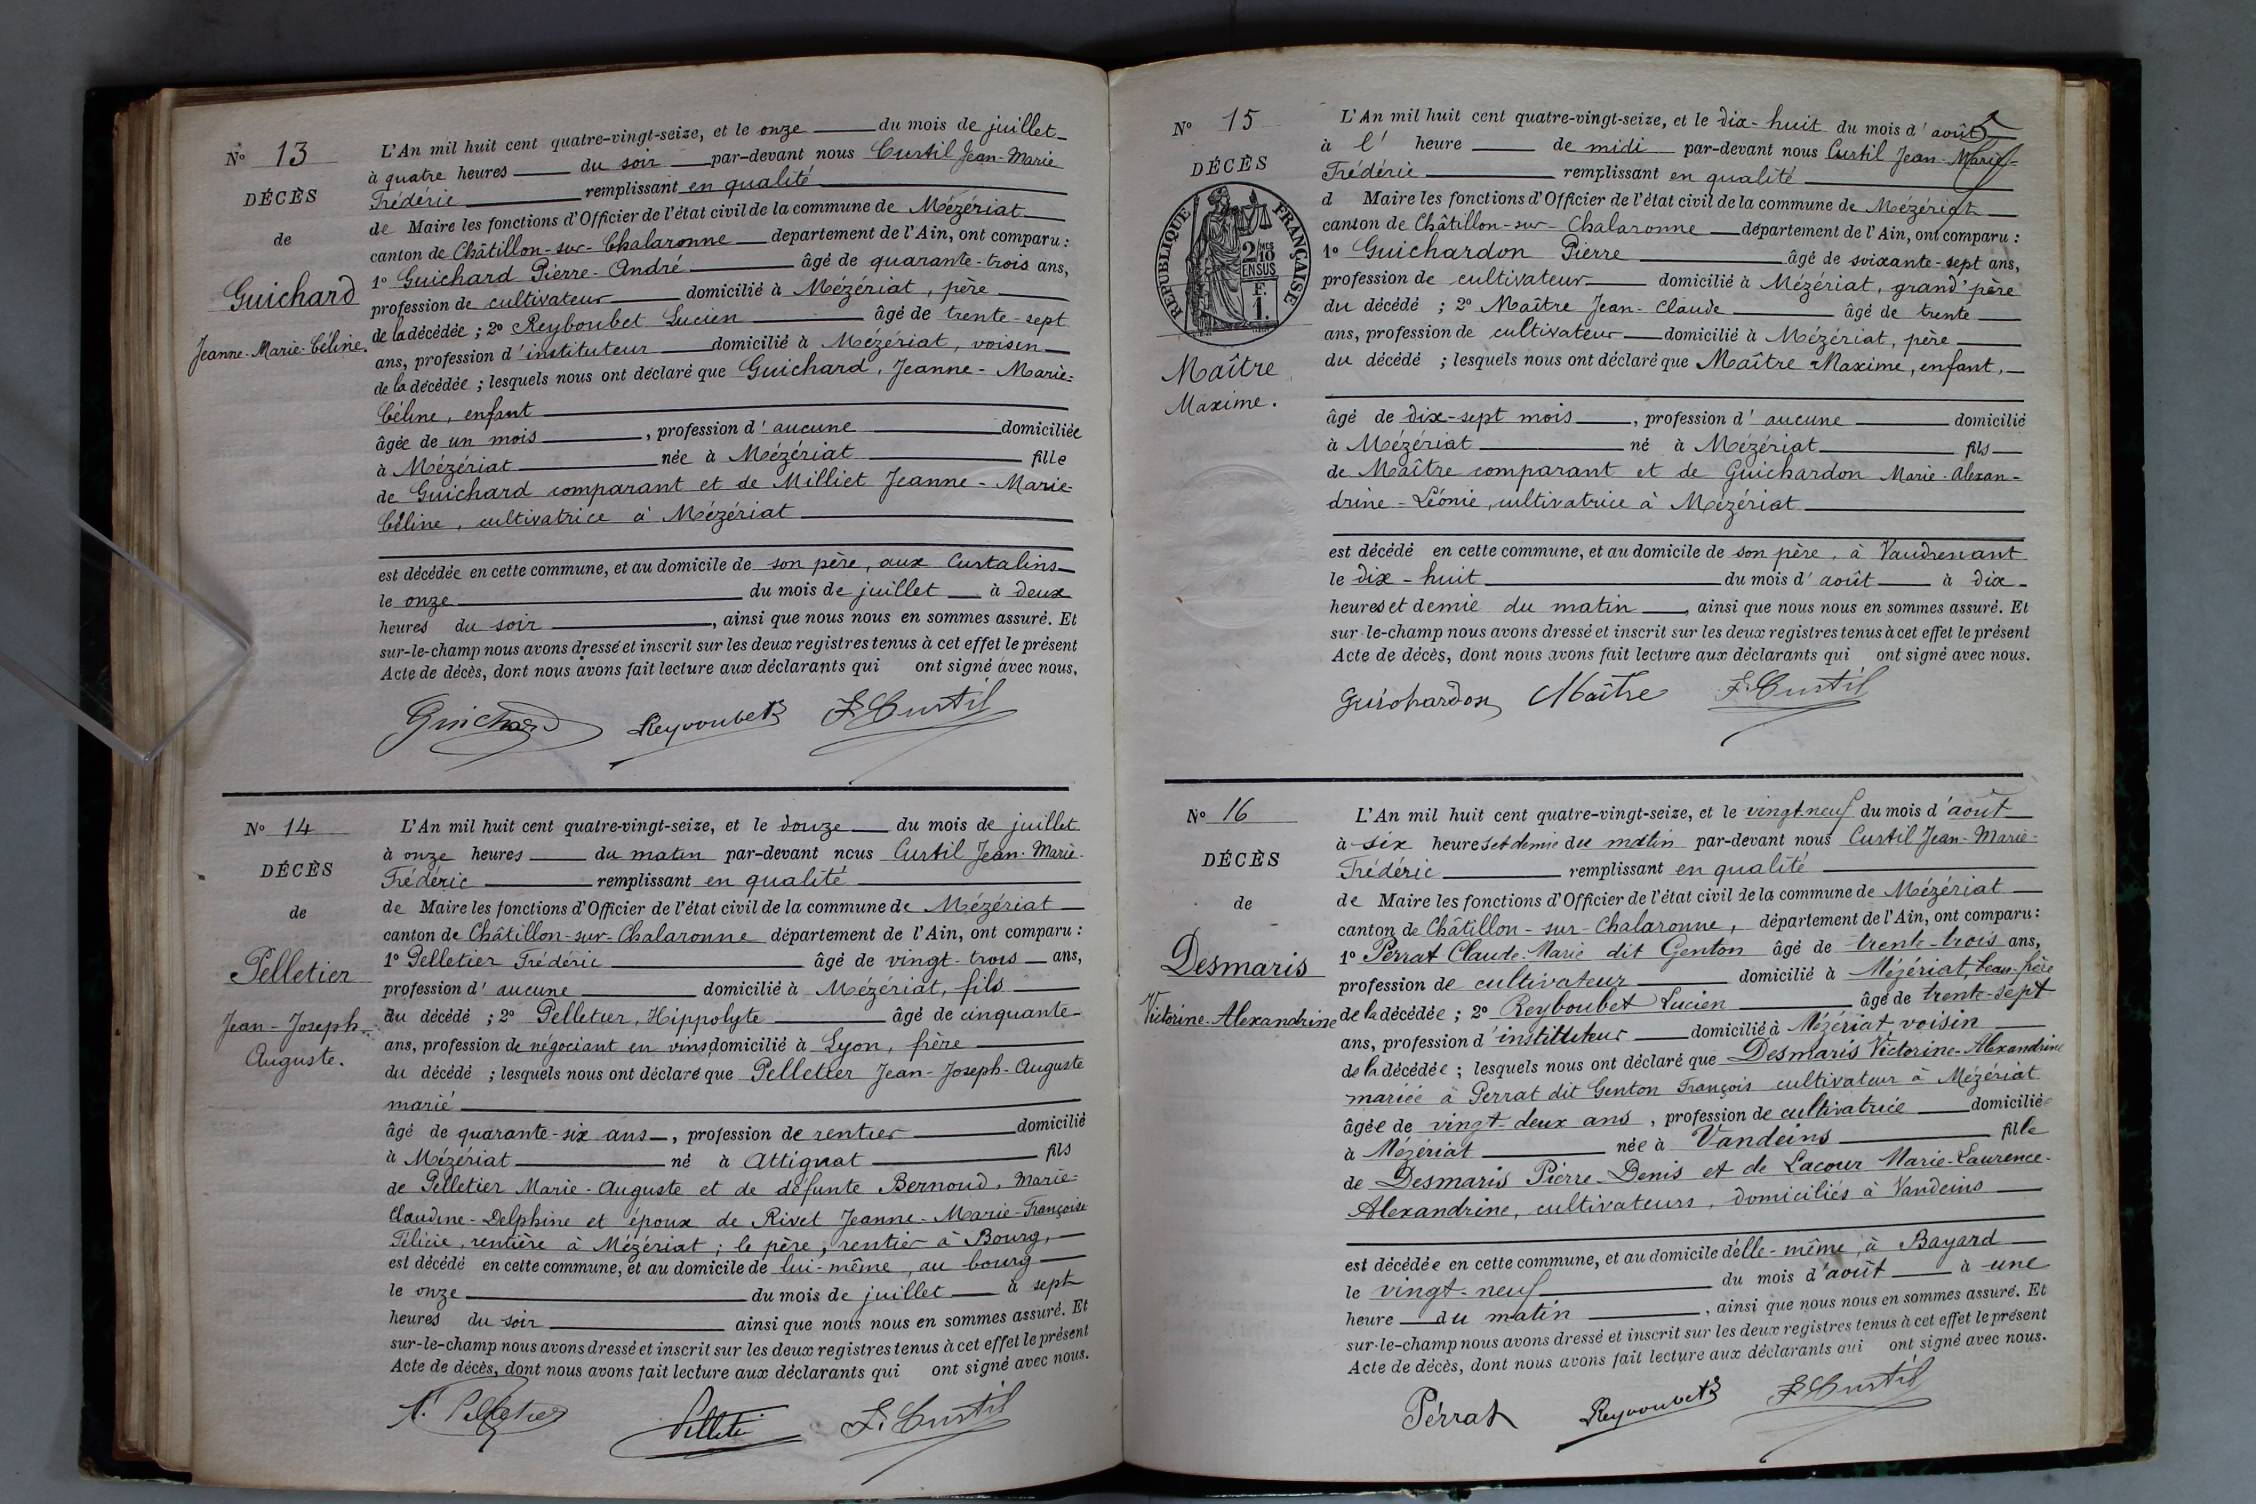 N° 13
DÉCÈS
de
Guichard
Jeanne-Marie-Céline.
L'An mil huit cent quatre-vingt-seize, et le onze du mois de juillet
à quatre heures du soir par-devant nous Curtil Jean-Marie
Frédéric remplissant en qualité
de Maire les fonctions d'Officier de l'état civil de la commune de Mézériat
canton de Châtillon-sur-Chalaronne departement de l'Ain, ont comparu :
1° Guichard Pierre-André âgé de quarante-trois ans,
profession de cultivateur domicilié à Mézériat, père
de la décédée ; 2° Reyboubet Lucien âgé de trente-sept
ans, profession d'instituteur domicilié à Mézériat, voisin
de la décédée ; lesquels nous ont déclaré que Guichard, Jeanne-Marie-
Céline, enfant
âgée de un mois, profession d'aucune domiciliée
à Mézériat née à Mézériat fille
de Guichard comparant et de Milliet Jeanne-Marie-
Céline, cultivatrice à Mézériat
est décédée en cette commune, et au domicile de son père, aux Curtalins
le onze du mois de juillet à deux
heures du soir, ainsi que nous nous en sommes assuré. Et
sur-le-champ nous avons dressé et inscrit sur les deux registres tenus à cet effet le présent
Acte de décès, dont nous avons fait lecture aux déclarants qui ont signé avec nous.
Guichard Reyboubet F. Curtil
N° 14
DÉCÈS
de
Pelletier
Jean-Joseph-
Auguste.
L'An mil huit cent quatre-vingt-seize, et le douze du mois de juillet
à onze heures du matin par-devant nous Curtil Jean-Marie-
Frédéric remplissant en qualité
de Maire les fonctions d'Officier de l'état civil de la commune de Mézériat
canton de Châtillon-sur-Chalaronne département de l'Ain, ont comparu :
1° Pelletier Frédéric âgé de vingt-trois ans,
profession d'aucune domicilié à Mézériat, fils
du décédé ; 2° Pelletier, Hippolyte âgé de cinquante-
ans, profession de négociant en vins, domicilié à Lyon, frère
du décédé ; lesquels nous ont déclaré que Pelletier Jean-Joseph-Auguste
marié
âgé de quarante-six ans, profession de rentier domicilié
à Mézériat né à Attignat fils
de Pelletier Marie-Auguste et de défunte Bernoud, Marie-
Claudine-Delphine et époux de Rivet Jeanne-Marie-Françoise
Félicie, rentière à Mézériat ; le père, rentier à Bourg,
est décédé en cette commune, et au domicile de lui-même, au bourg
le onze du mois de juillet à sept
heures du soir ainsi que nous nous en sommes assuré. Et
sur-le-champ nous avons dressé et inscrit sur les deux registres tenus à cet effet le présent
Acte de décès, dont nous avons fait lecture aux déclarants qui ont signé avec nous.
Pelletier F. Curtil
N° 15
DÉCÈS
RÉPUBLIQUE FRANÇAISE
2/10 MES
EN SUS
F.
1.
Maître
Maxime.
L'An mil huit cent quatre-vingt-seize, et le dix-huit du mois d'août
à l' heure de midi par-devant nous Curtil Jean-Marie-
Frédéric remplissant en qualité
d Maire les fonctions d'Officier de l'état civil de la commune de Mézériat
canton de Châtillon-sur-Chalaronne département de l'Ain, ont comparu :
1° Guichardon Pierre âgé de soixante-sept ans,
profession de cultivateur domicilié à Mézériat, grand'père
du décédé ; 2° Maître Jean-Claude âgé de trente
ans, profession de cultivateur domicilié à Mézériat, père
du décédé ; lesquels nous ont déclaré que Maître Maxime, enfant,
âgé de dix-sept mois, profession d'aucune domicilié
à Mézériat né à Mézériat fils
de Maître comparant et de Guichardon Marie-Alexan-
drine-Léonie, cultivatrice à Mézériat
est décédé en cette commune, et au domicile de son père, à Vaudrenant
le dix-huit du mois d'août à dix-
heures et demie du matin, ainsi que nous nous en sommes assuré. Et
sur-le-champ nous avons dressé et inscrit sur les deux registres tenus à cet effet le présent
Acte de décès, dont nous avons fait lecture aux déclarants qui ont signé avec nous.
Guichardon Maître F. Curtil
N° 16
DÉCÈS
de
Desmaris
Victorine-Alexandrine
L'An mil huit cent quatre-vingt-seize, et le vingt-neuf du mois d'août
à six heures et demie du matin par-devant nous Curtil Jean-Marie-
Frédéric remplissant en qualité
de Maire les fonctions d'Officier de l'état civil de la commune de Mézériat
canton de Châtillon-sur-Chalaronne, département de l'Ain, ont comparu :
1° Perrat Claude-Marie dit Genton âgé de trente-trois ans,
profession de cultivateur domicilié à Mézériat, beau-frère
de la décédée ; 2° Reyboubet Lucien âgé de trente-sept
ans, profession d'instituteur domicilié à Mézériat, voisin
de la décédée ; lesquels nous ont déclaré que Desmaris Victorine-Alexandrine
mariée à Perrat dit Genton François cultivateur à Mézériat
âgée de vingt-deux ans, profession de cultivatrice domiciliée
à Mézériat née à Vandeins fille
de Desmaris Pierre-Denis et de Lacour Marie-Laurence-
Alexandrine, cultivateurs, domiciliés à Vandeins
est décédée en cette commune, et au domicile d'elle-même, à Bayard
le vingt-neuf du mois d'août à une
heure du matin, ainsi que nous nous en sommes assuré. Et
sur-le-champ nous avons dressé et inscrit sur les deux registres tenus à cet effet le présent
Acte de décès, dont nous avons fait lecture aux déclarants qui ont signé avec nous.
Perrat Reyboubet F. Curtil